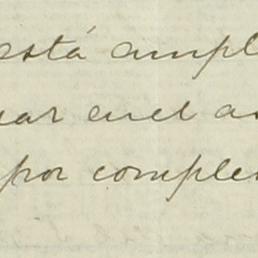 está ampl
ar en el a
por comple